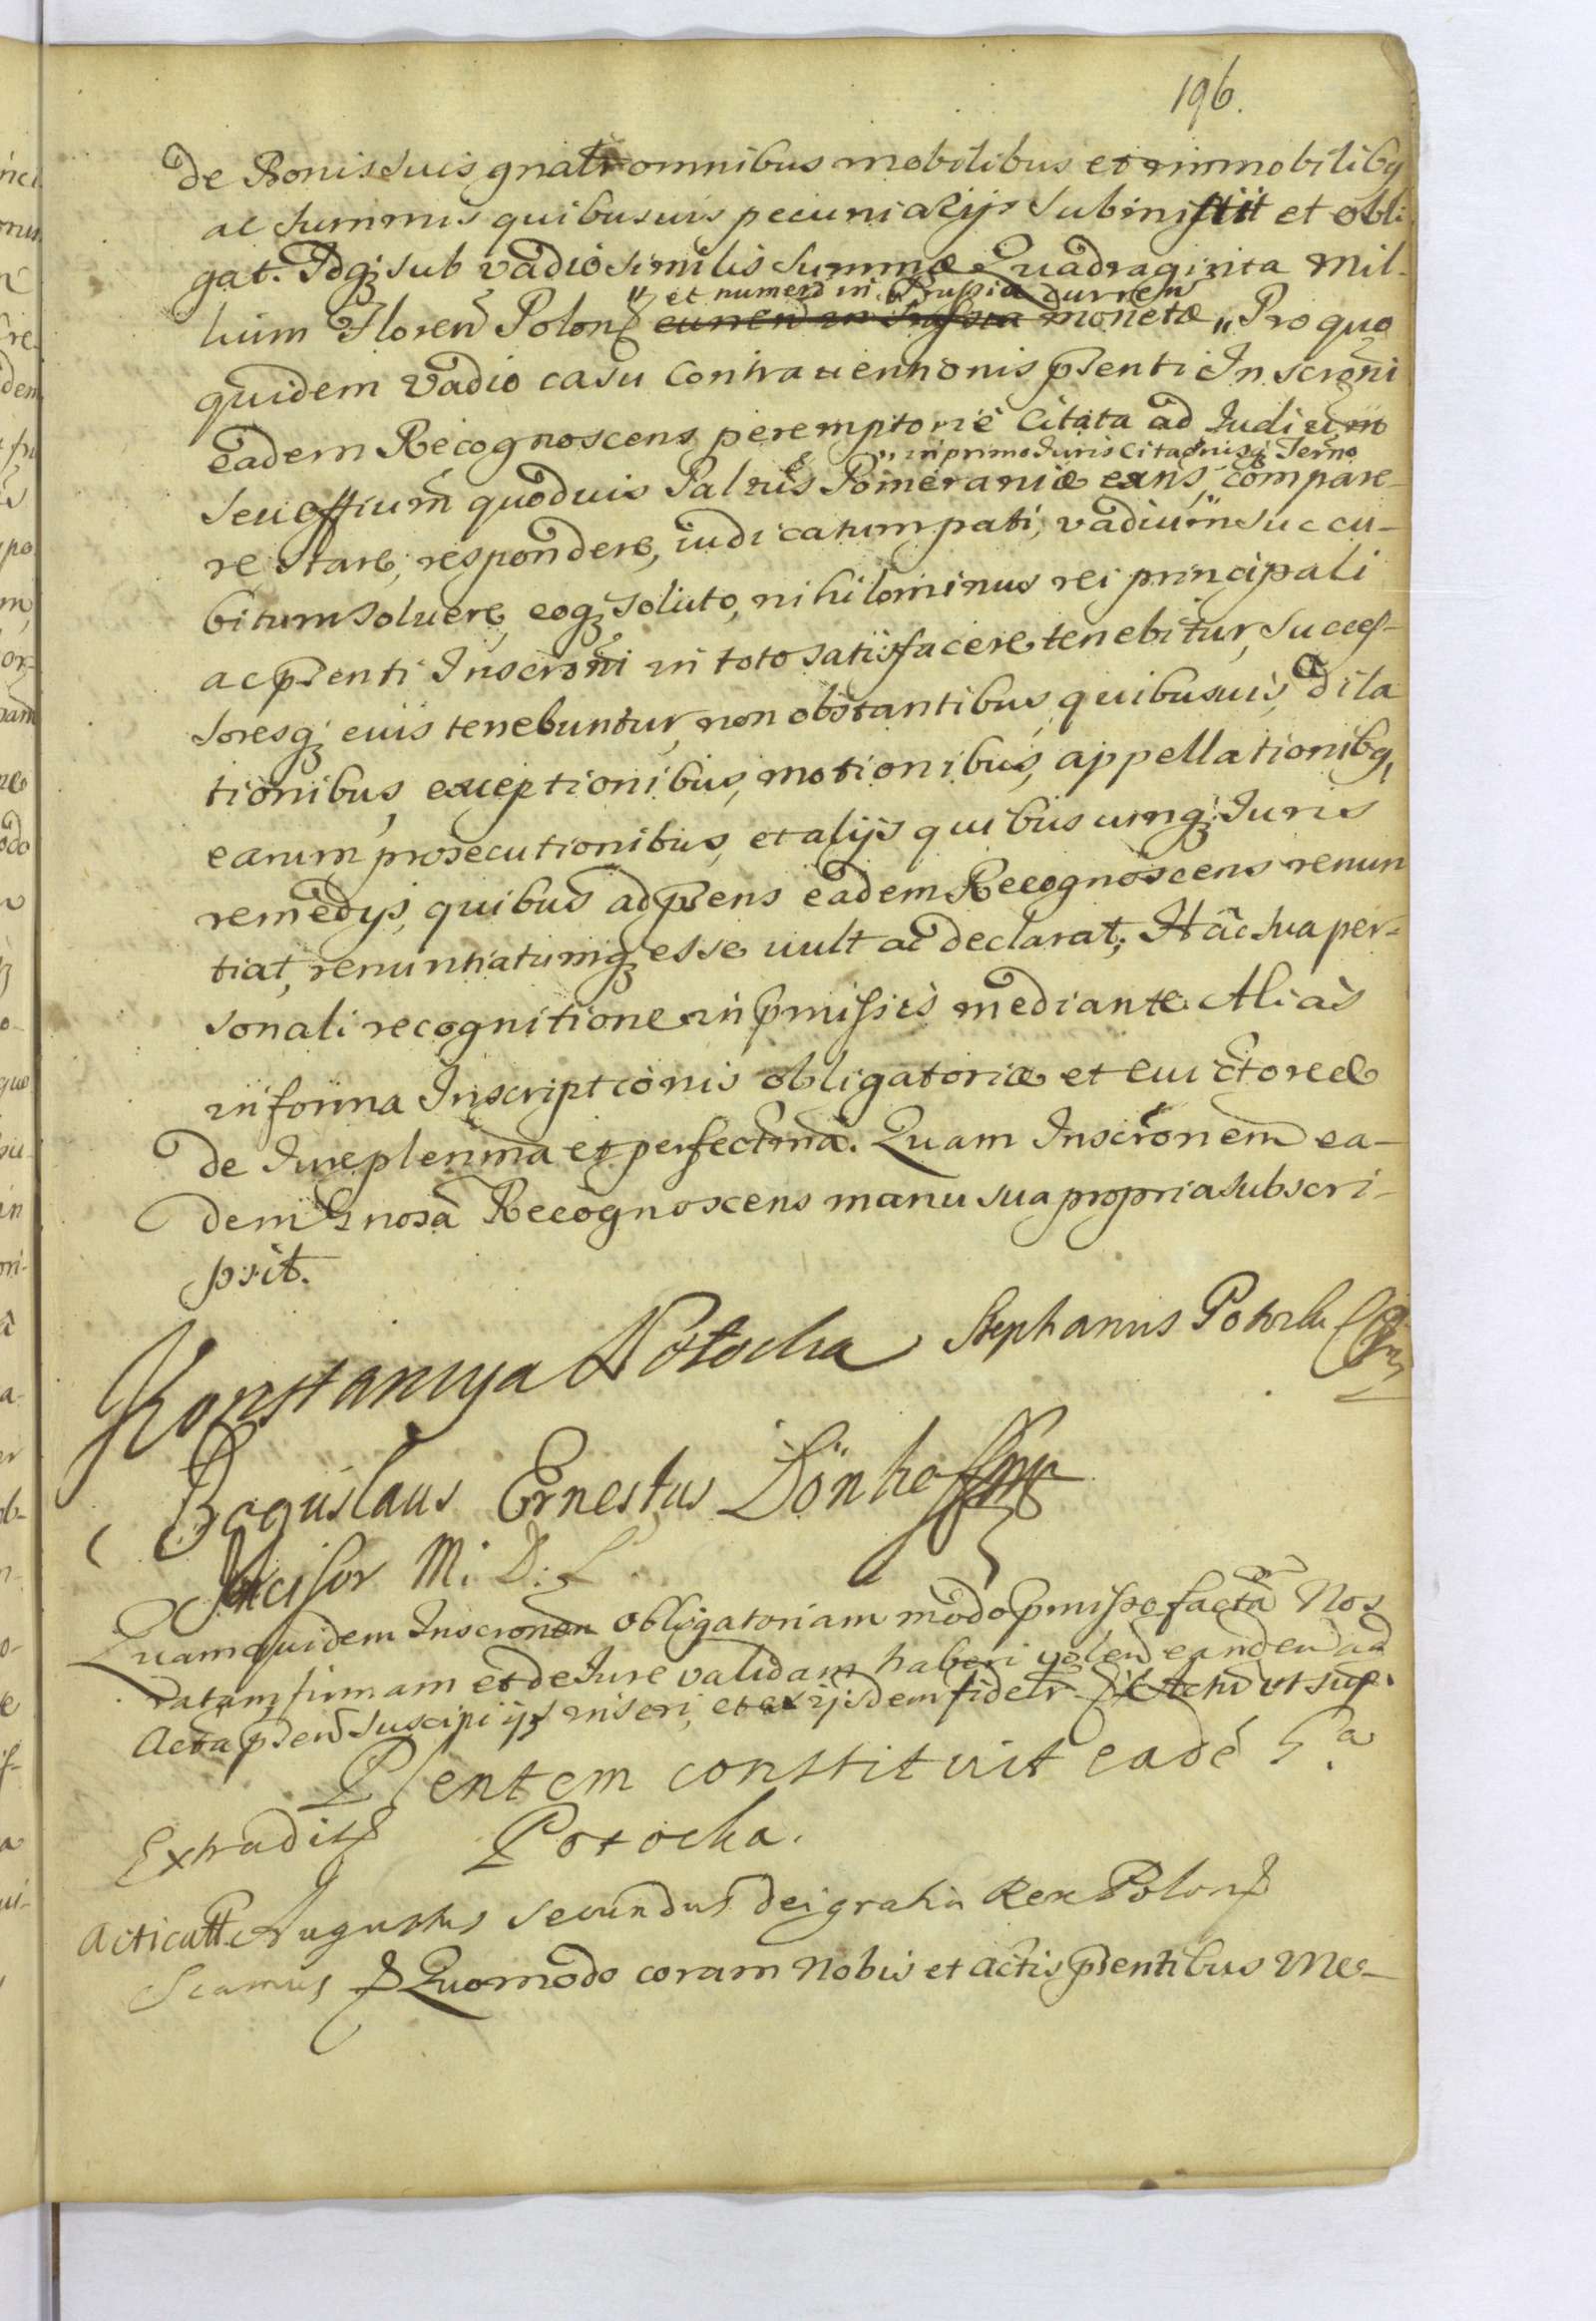 196.
de Bonis suis gnalr omnibus mobilibus et immobilibq
ac summis quibusuis pecuniarijs subinstit et obli
gat. Idq; sub vadio similis summæ Quadraginta Mil-
" et numerd in Prussia curren
lium Floren Polon curren in Prussia monetæ „ Pro quo
quidem Vadio casu Contrauentionis pśenti Inscroni
eadem Recognoscens peremptorie Citata ad Iudicium
„ in primo Iuris Citaonisq; Termo
seu offium quoduis Paltus Pomeraniæ exns, compare-
re, stare, respondere, iudicatum pati, vadium succu-
bitum soluere, eoq; soluto, nihilominus rei principali
ac pśenti Inscroni in toto satisfacere tenebitur, succes-
soresq; eius tenebuntur, non obstantibus quibusuis dila
tionibus, exceptionibus, motionibus, appellationibq,
earum prosecutionibus, et alijs quibuscunq; Iuris
remedys, quibus ad pśens eadem Recognoscens renun
tiat, renuntiatumq; esse uult ac declarat; Hac sua per-
sonali recognitione in pmissis mediante. Alias
in forma Inscriptionis obligatoriæ et euictoreæ
de Iure plenma et perfectma. Quam Inscronem ea-
dem Gnosa Recognoscens manu sua propria subscri-
psit.
Konstancya Potocka Stephanus Potocki
Boguslaus Ernestus Dönhoff mp
Incisor M: D: L
Quam quidem Inscronem obligatoriam modo pmisso facta Nos
ratam, firmam et de Iure validam haberi volen eanden ad
Acta pśen suscipi ijsq inseri, et ex ijsdem fidelr Actu ut supr
Pśentem constituit eadé G.a
Extradit Potocka.
Acticatt Augustus Secundus Dei gratia Rex Polon
Scamus Quomodo coram Nobis et Actis pśentibus Me-